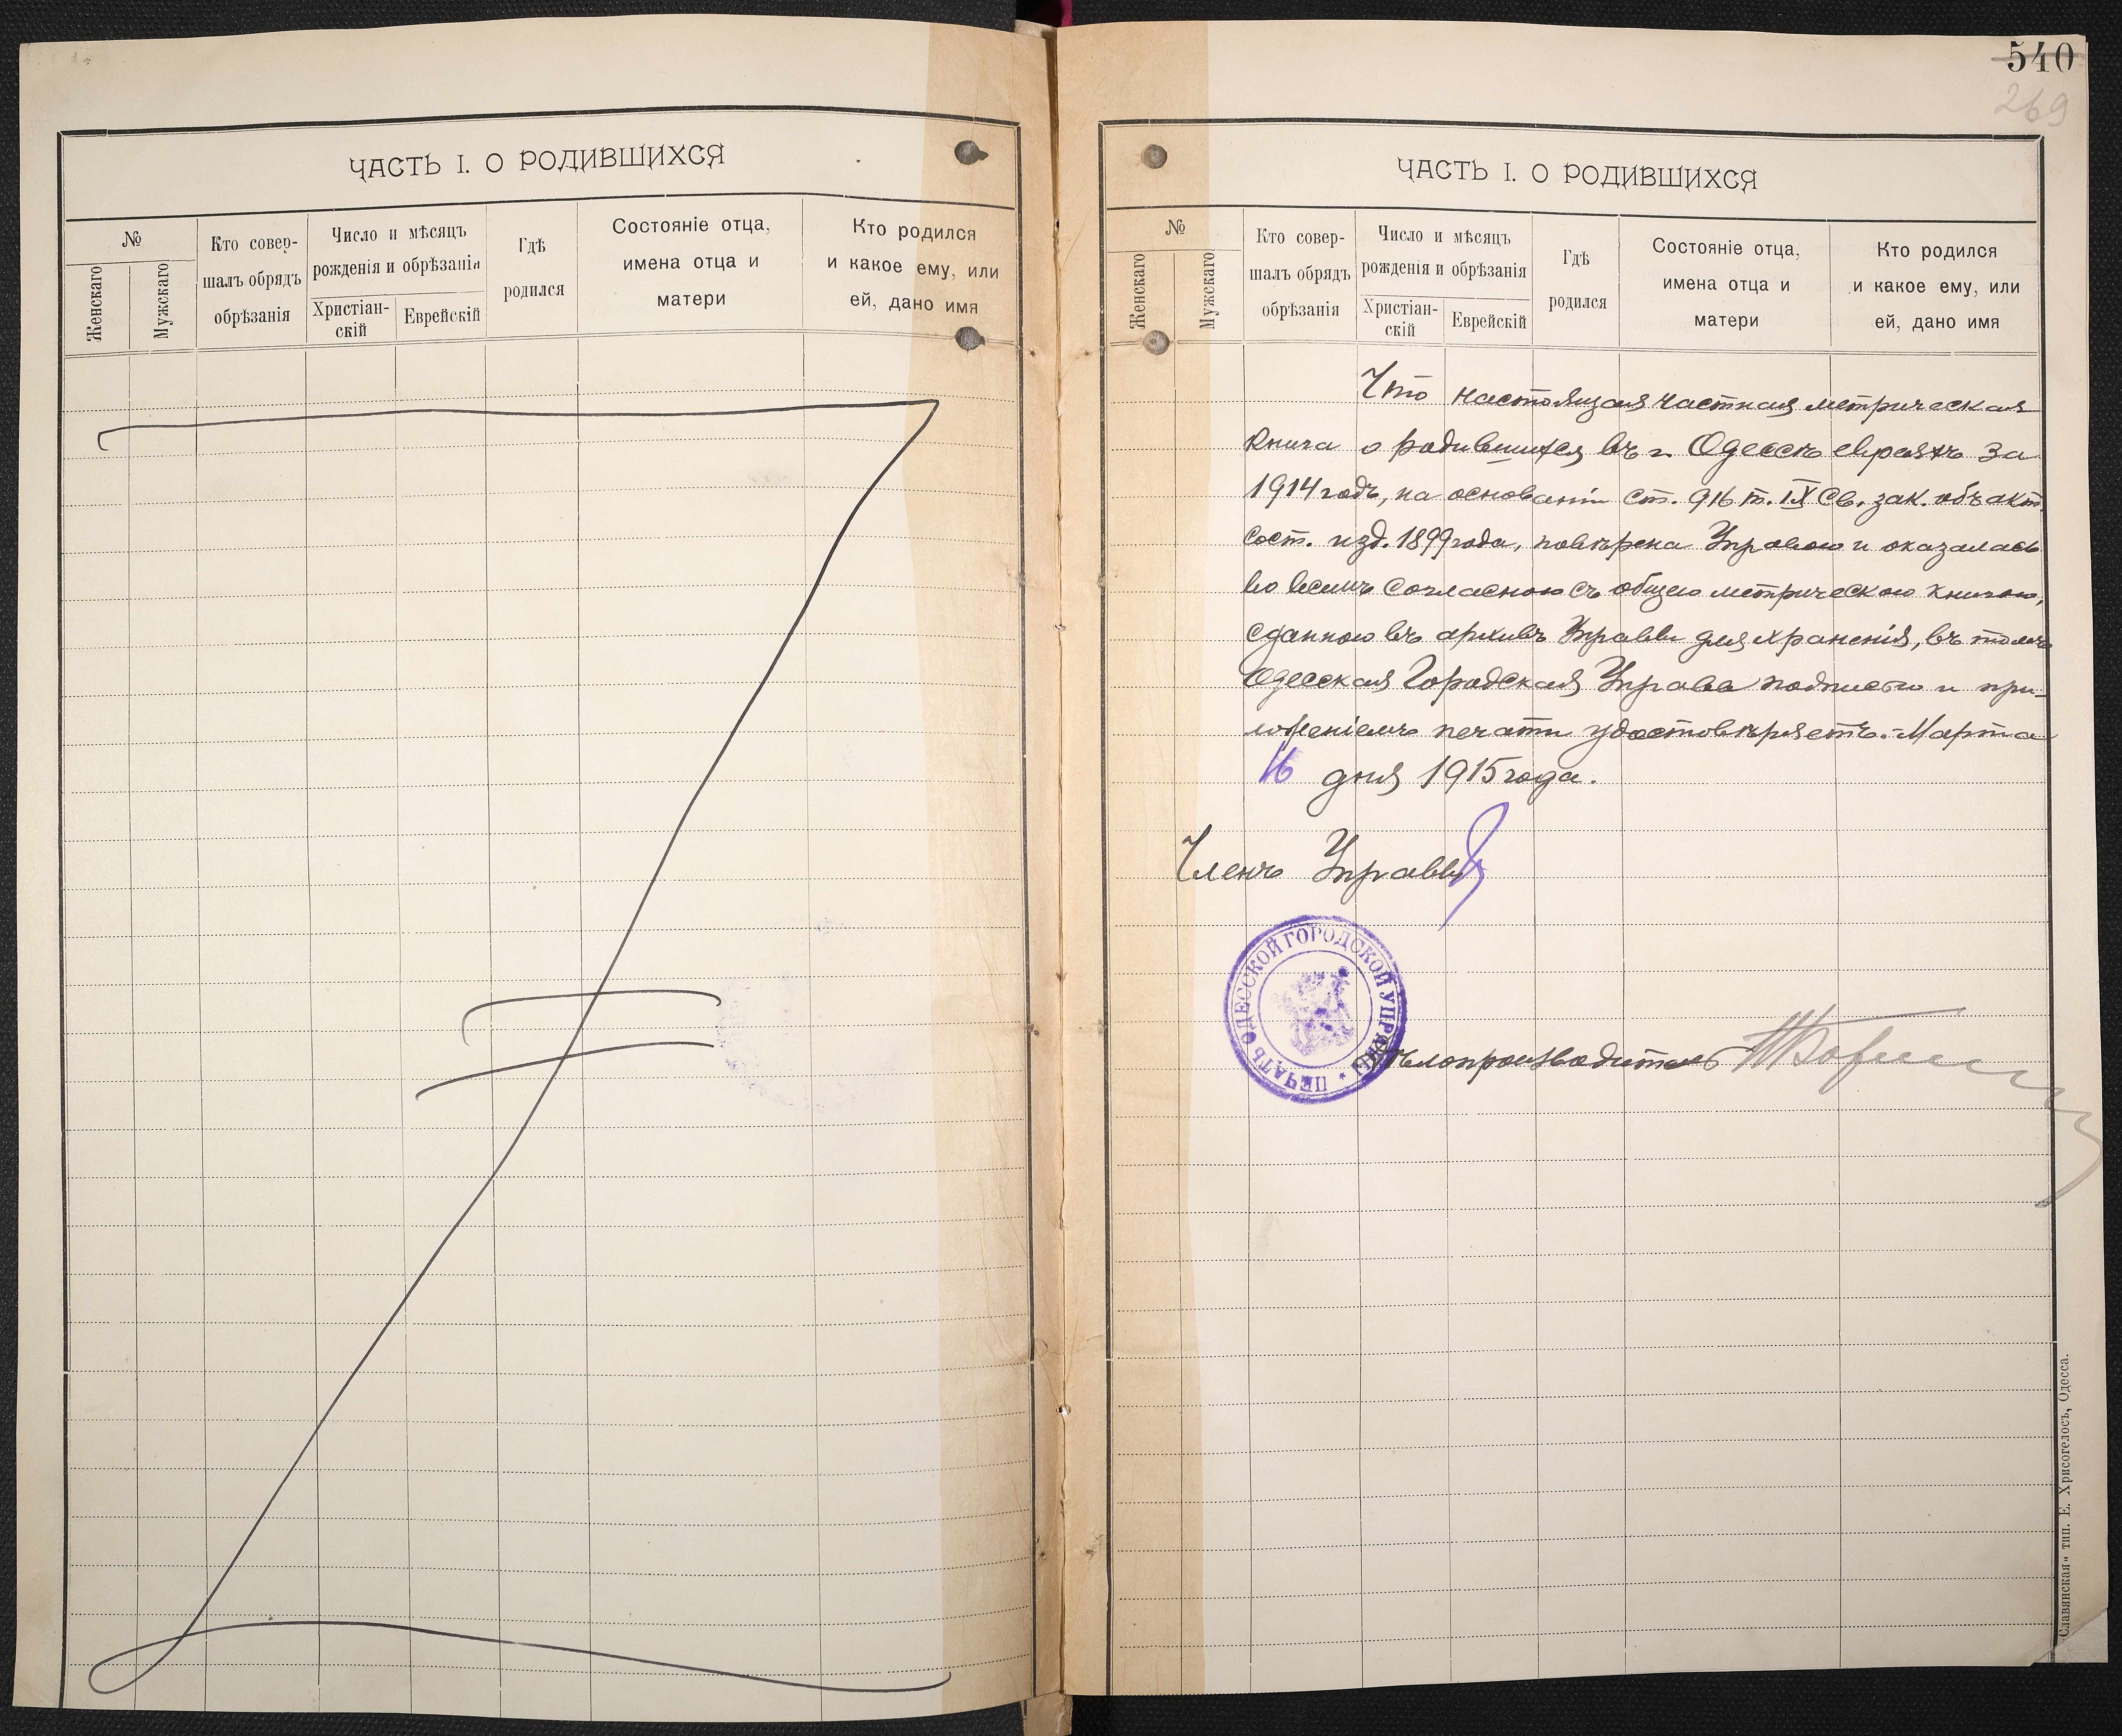 ЧАСТЬ I. О РОДИВШИХСЯ
№
Женскаго
Мужскаго
Кто совер-
шалъ обрядъ
обрѣзанія
Число и мѣсяцъ
рожденія и обрѣзанія
Христіан-
скій
Еврейскій
Гдѣ
родился
Состояніе отца,
имена отца и
матери
Кто родился
и какое ему, или
ей, дано имя
540
269
ЧАСТЬ I. О РОДИВШИХСЯ
№
Женскаго
Мужскаго
Кто совер-
шалъ обрядъ
обрѣзанія
Число и мѣсяцъ
рожденія и обрѣзанія
Христіан-
скій
Еврейскій
Гдѣ
родился
Состояніе отца,
имена отца и
матери
Кто родился
и какое ему, или
ей, дано имя
Что настоящая частная метрическая
книга о родившихся въ г. Одессѣ евреяхъ за
1914 годъ, на основаніи ст. 916 т. IX Св. зак. объ акт.
сост. изд. 1899 года, повѣрена Управою и оказалась
во всемъ согласною съ общею метрическою книгою,
сданною въ архивъ Управы для храненія, въ томъ
Одесская Городская Управа подписью и при-
ложеніемъ печати удостовѣряетъ. Марта
16 дня 1915 года.
Членъ Управы
ПЕЧАТЬ ОДЕССКОЙ ГОРОДСКОЙ УПРАВЫ
Дѣлопроизводитель
„Славянская" тип. Е. Хрисогелосъ, Одесса.